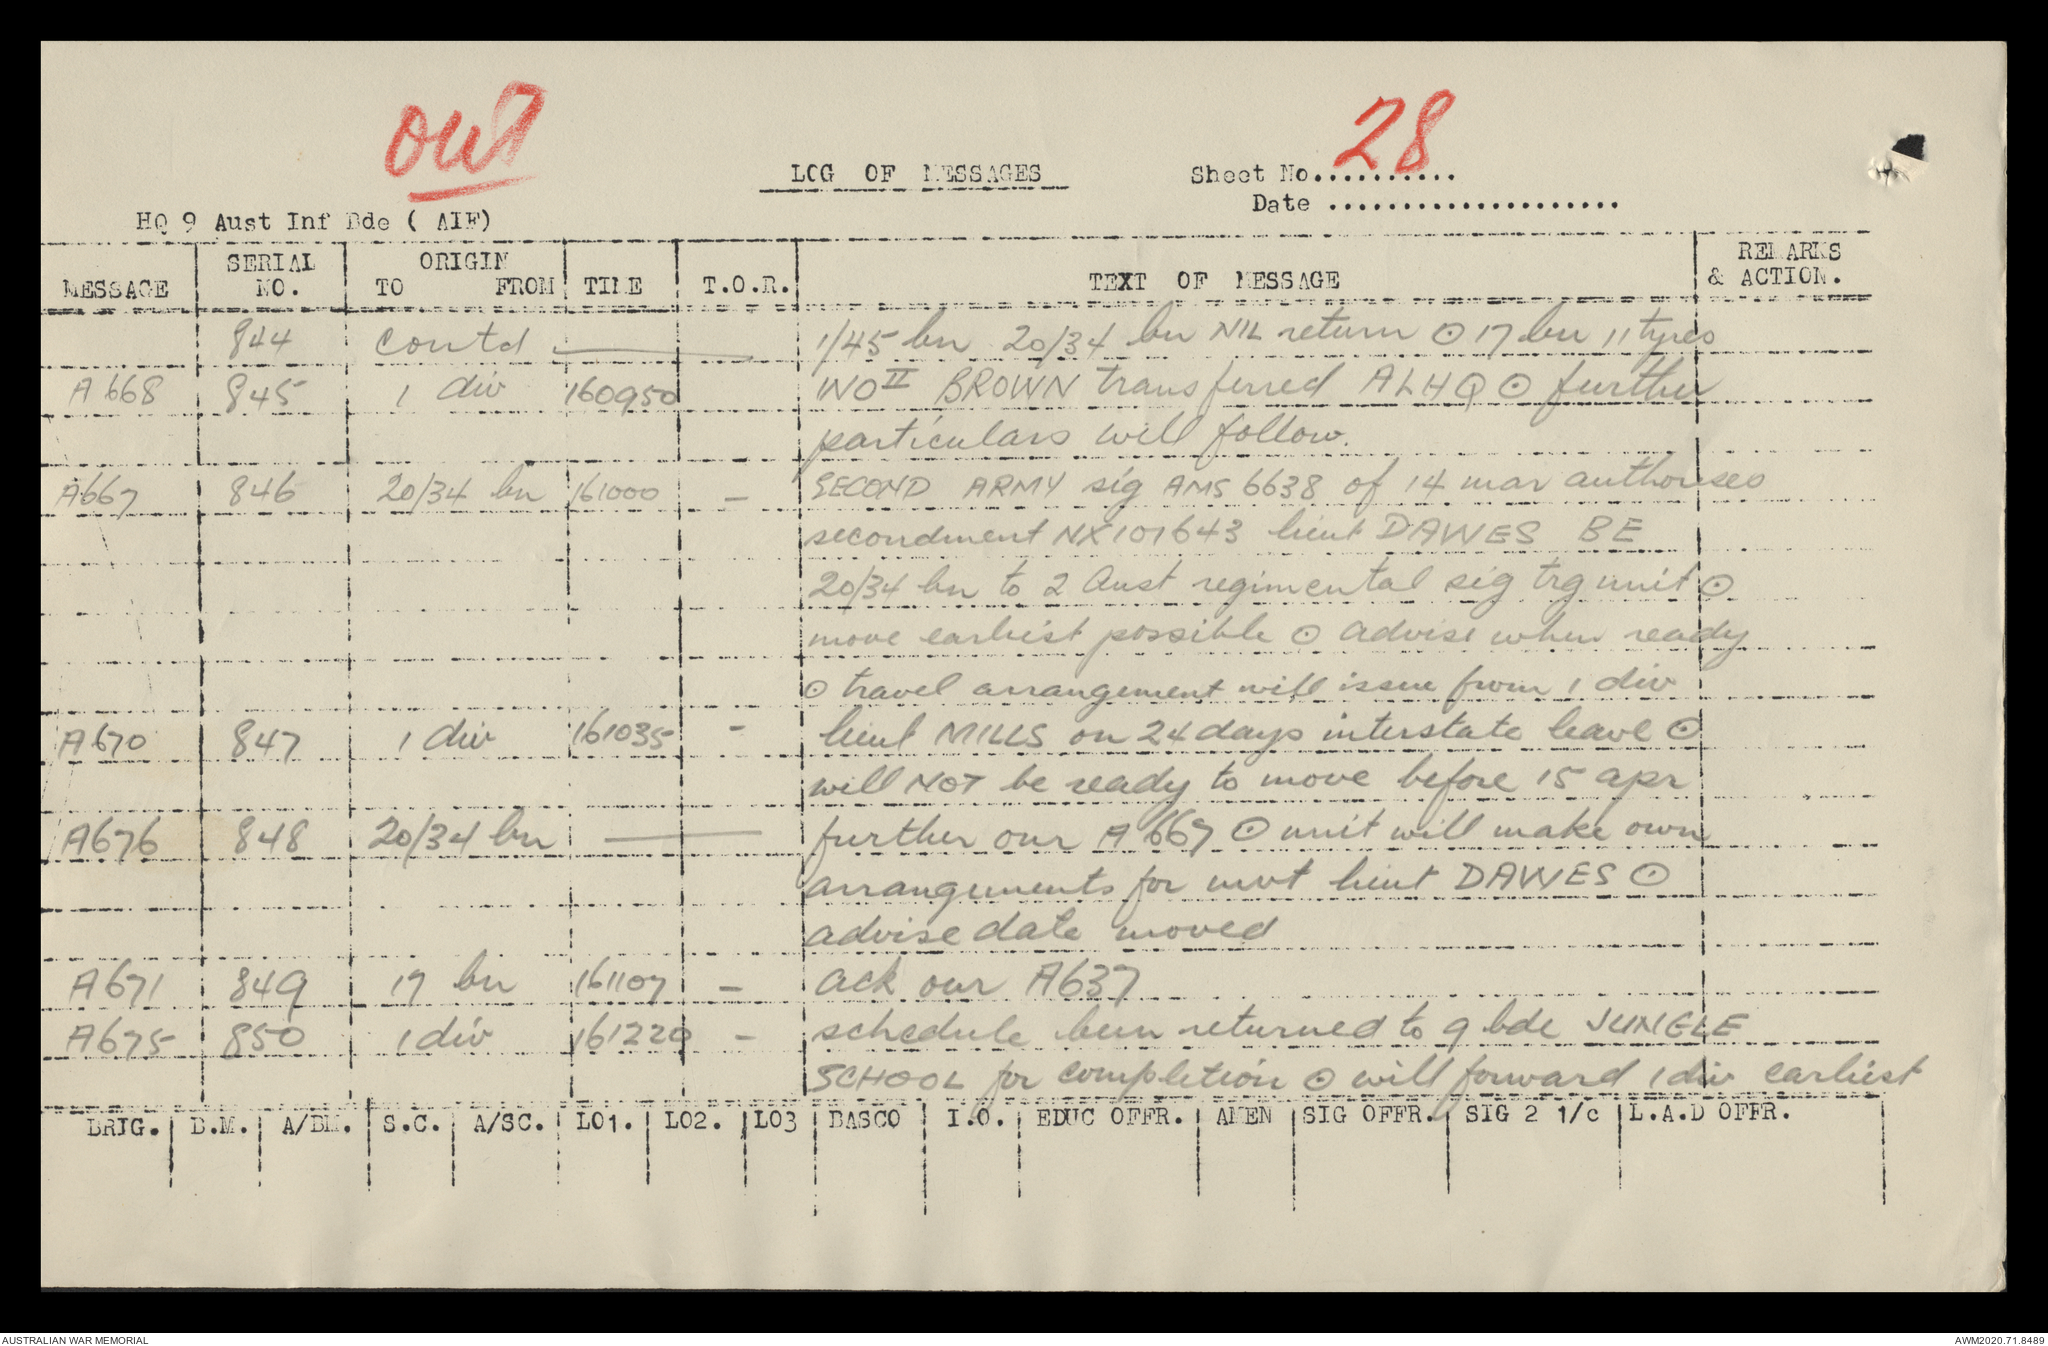 out
28
LOG OF MESSAGES
Sheet No..........
Date ....................
HQ 9 Aust Inf Bde ( AIF)
MESSAGE SERIAL NO. ORIGIN TO FROM TIME T.O.R. TEXT OF MESSAGE REMARKS & ACTION.
844 contd 1/45 bn 20/34 bn NIL return ⊙ 17 bn 11 tyres
A668 845 1 div 160950 WO II BROWN transferred ALHQ ⊙ further
particulars will follow.
A667 846 20/34 bn 161000 - SECOND ARMY sig AMS 6638 of 14 mar authorises
secondment NX107643 lieut DAWES BE
20/34 bn to 2 Aust regimental sig trg unit ⊙
move earliest possible ⊙ advise when ready
⊙ travel arrangement will issue from 1 div
A670 847 1 div 161035 - lieut MILLS on 24 days interstate leave ⊙
will NOT be ready to move before 15 apr
A676 848 20/34 bn further our A 667 ⊙ unit will make own
arrangements for mvt lieut DAWES ⊙
advise date moved
A671 849 17 bn 161107 - ack our A637
A675 850 1 div 161220 - schedule been returned to 9 bde JUNGLE
SCHOOL for completion ⊙ will forward 1 div earliest
BRIG. B.M. A/BM. S.C. A/SC. LO1. LO2. LO3 BASCO I.O. EDUC OFFR. AMEN SIG OFFR. SIG 2 1/c L.A.D OFFR.
AUSTRALIAN WAR MEMORIAL
AWM2020.71.8489